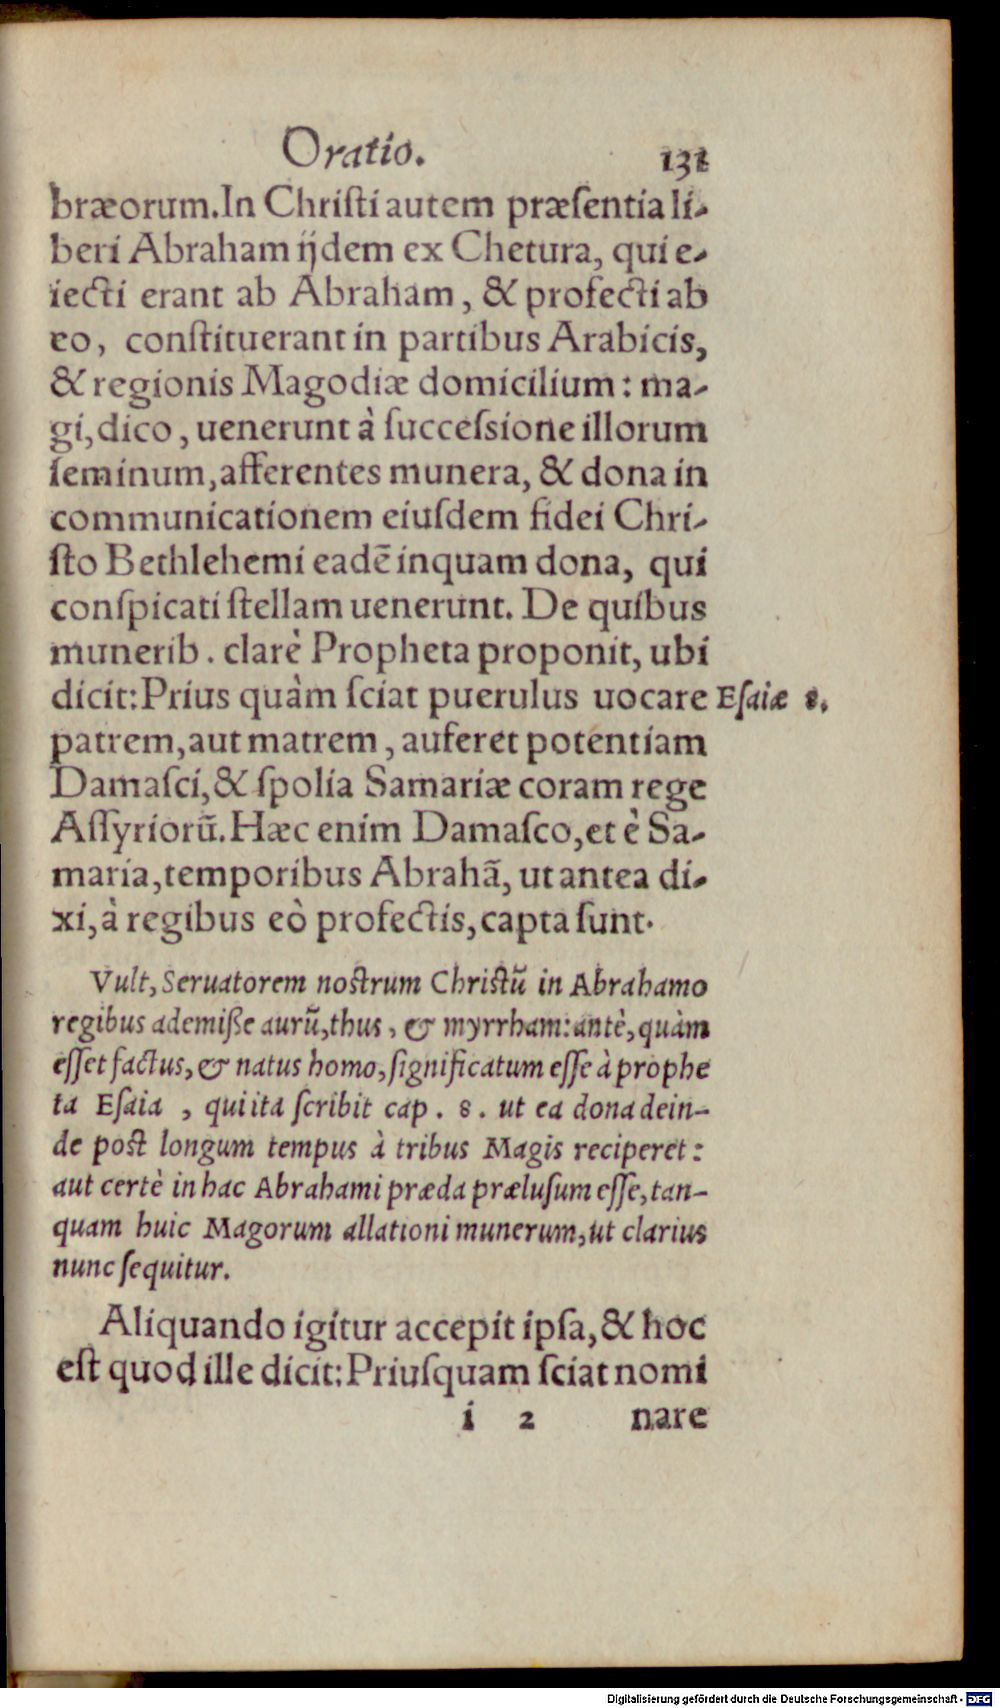 Oratio. 131
bræorum. In Chriſti autem præſentia li-
beri Abraham ijdem ex Chetura, qui e-
iecti erant ab Abraham, & profecti ab
eo, conſtituerant in partibus Arabicis,
& regionis Magodiæ domicilium: ma-
gi, dico, uenerunt à ſucceſsione illorum
ſeminum, afferentes munera, & dona in
communicationem eiuſdem fidei Chri-
ſto Bethlehemi eadē inquam dona, qui
conſpicati ſtellam uenerunt. De quibus
munerib. clarè Propheta proponit, ubi
dicit: Prius quàm ſciat puerulus uocare Eſaiæ 8.
patrem, aut matrem, auferet potentiam
Damaſci, & ſpolia Samariæ coram rege
Aſſyriorū. Hæc enim Damaſco, et è Sa-
maria, temporibus Abrahā, ut antea di-
xi, à regibus eò profectis, capta ſunt.
Vult, Seruatorem noſtrum Chriſtū in Abrahamo
regibus ademiße aurū, thus, & myrrham: antè, quàm
eſſet factus, & natus homo, ſignificatum eſſe à prophe
ta Eſaia, qui ita ſcribit cap. 8. ut ea dona dein-
de poſt longum tempus à tribus Magis reciperet:
aut certè in hac Abrahami præda præluſum eſſe, tan-
quam huic Magorum allationi munerum, ut clarius
nunc ſequitur.
Aliquando igitur accepit ipſa, & hoc
eſt quod ille dicit: Priuſquam ſciat nomi
i 2 nare
Digitalisierung gefördert durch die Deutsche Forschungsgemeinschaft - DFG